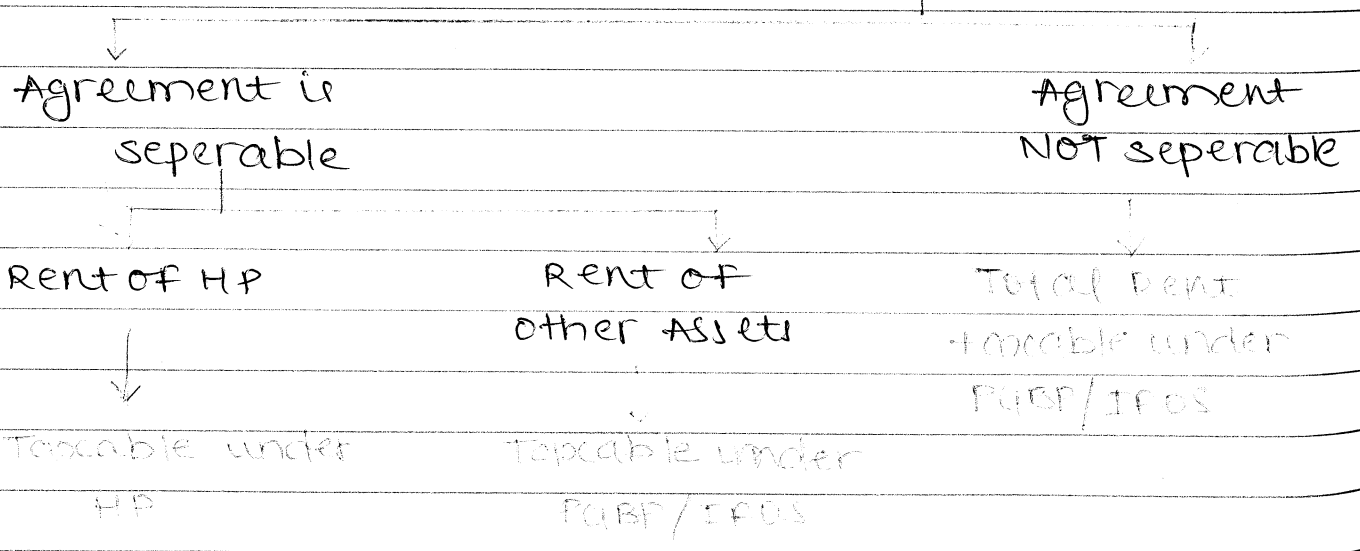 Agreement is
seperable
Agreement
NOT seperable
Rent of HP
Rent of
other Assets
Total Rent
taxable under
PGBP/IFOS
Taxable under
HP
Taxable under
PGBP/IFOS